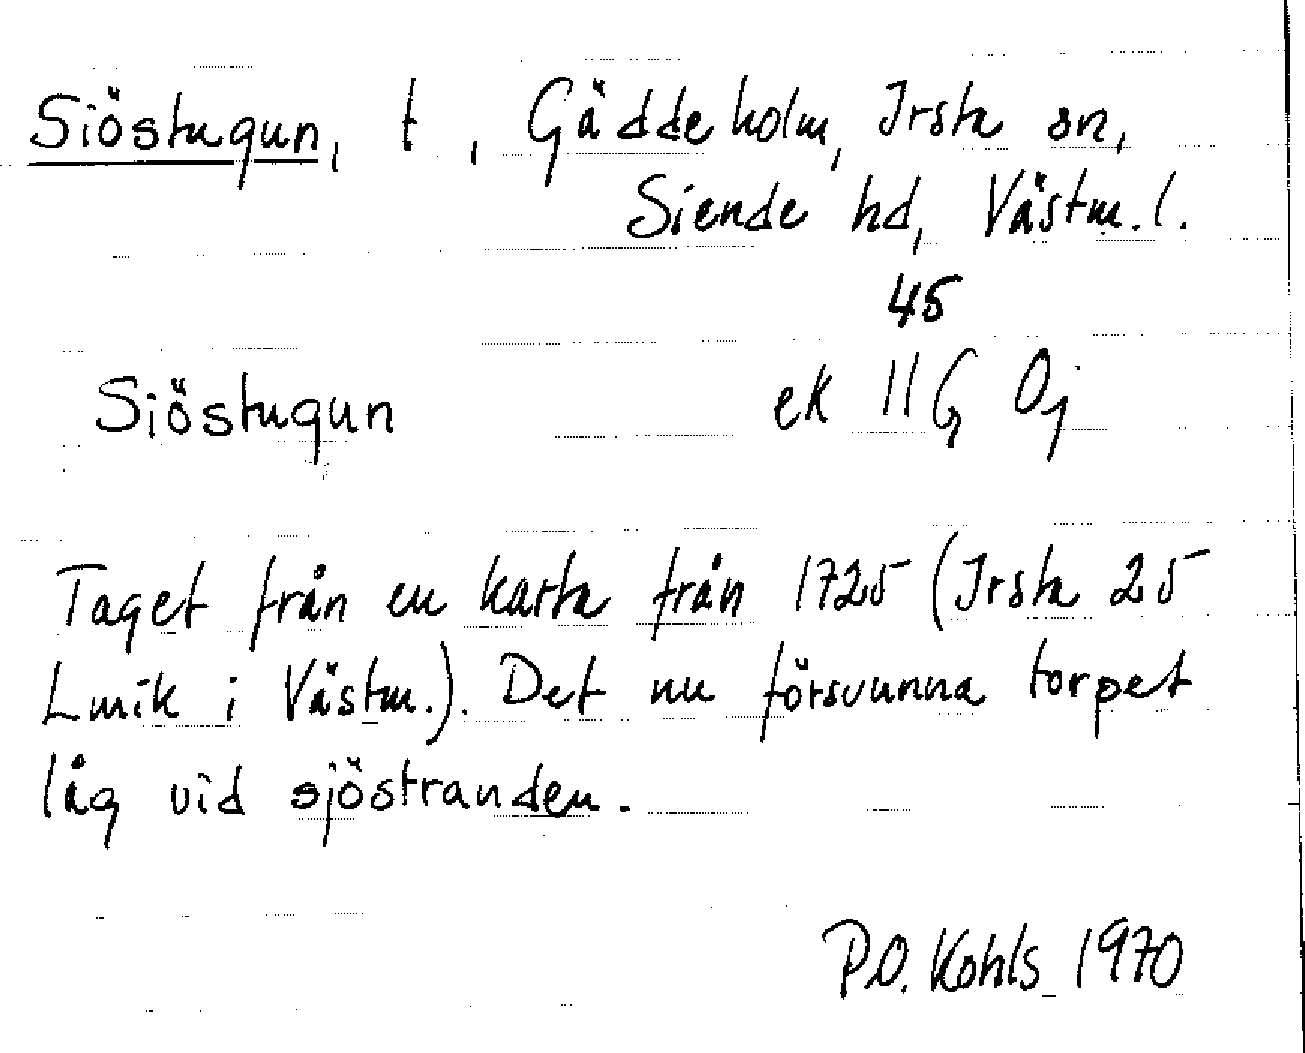 Siöstugun, t, Gäddeholm, Irsta sn,
Siende hd, Västm. l.
45
Siöstugun ek 11G 0j
Taget från en karta från 1725 (Irsta 25
Lmik i Västm.). Det nu försvunna torpet
låg vid sjöstranden.
P.O. Kohls 1970